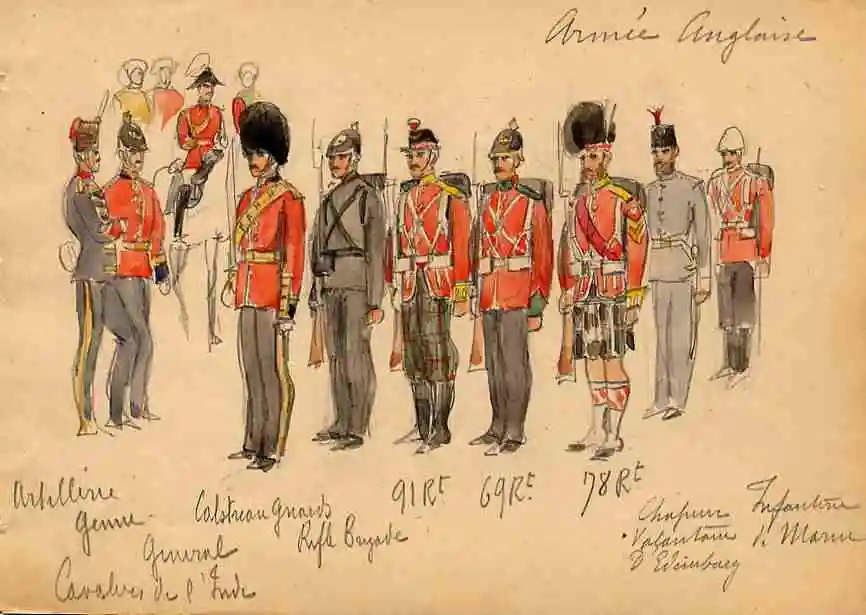 Armée Anglaise
Artillerie
Genie
General
Cavaleres de l'Inde
Colstreau Guards
Rifle Brigade
91 Rt
69 Rt.
78 Rt
Chapeur
Volontaire
D'Edimbourg
Infanterie
de Marine